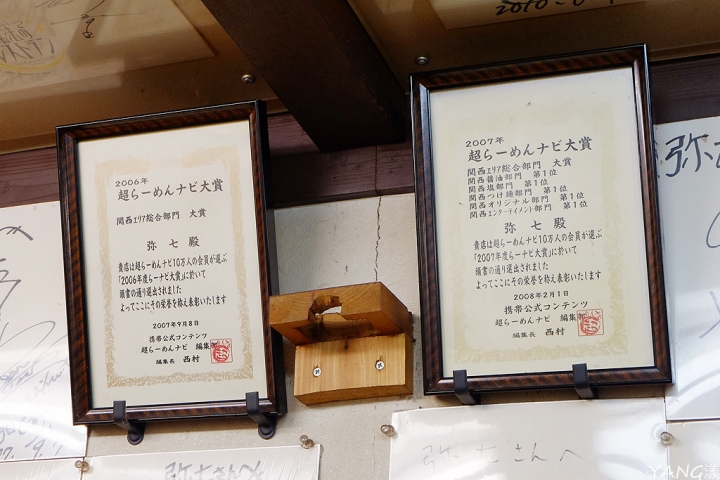 2006年
超らーめんナビ大賞
関西エリア総合部門 大賞
弥七殿
貴店は超らーめんナビ10万人の会員が選ぶ
「2006年度らーナビ大賞」に於いて
頭書の通り選出されました
よってここにその栄誉を称え表彰いたします
2007年9月8日
携帯公式コンテンツ
超らーめんナビ 編集部
編集長 西村
2007年
超らーめんナビ大賞
関西エリア総合部門 大賞
関西醤油部門 第1位
関西塩部門 第1位
関西つけ麺部門 第1位
関西オリジナル部門 第1位
関西エンターテイメント部門 第1位
弥七殿
貴店は超らーめんナビ10万人の会員が選ぶ
「2007年度らーナビ大賞」に於いて
頭書の通り選出されました
よってここにその栄誉を称え表彰いたします
2008年2月1日
携帯公式コンテンツ
超らーめんナビ 編集部
編集長 西村
弥七
弥七さんへ
弥七さんへ
YANG漾